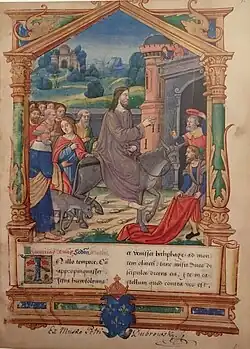 N illo tempore, Cũ
appropinquasset
Jesus hierosolimam
et venisset bethphage ad mon
tem oliveti: tunc misit duos di
scipulos dicens eis, ite in ca
stellum quod contra vos est,
Ex Musaeo Petri Dubrowsky